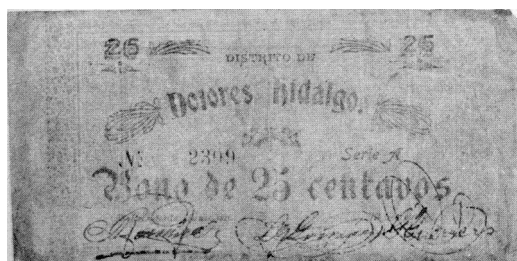 25 25
DISTRITO DE
Dolores Hidalgo.
No 2399 Serie A
Bono de 25 centavos